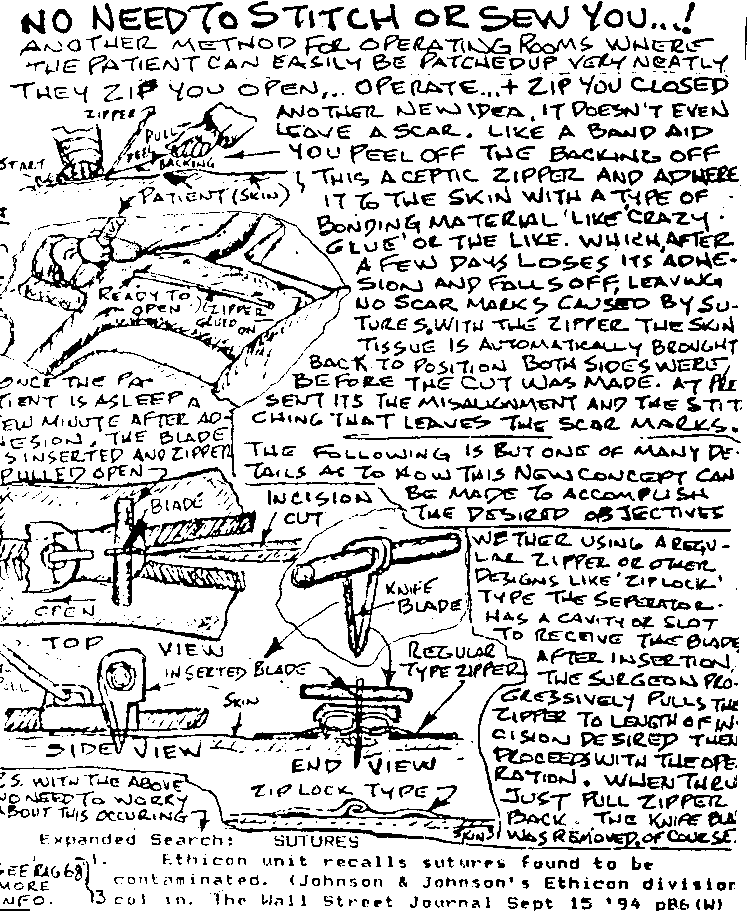 NO NEED TO STITCH OR SEW YOU...!
ANOTHER METHOD FOR OPERATING ROOMS WHERE
THE PATIENT CAN EASILY BE PATCHED UP VERY NEATLY
THEY ZIP YOU OPEN... OPERATE...+ ZIP YOU CLOSED
ANOTHER NEW IDEA, IT DOESN'T EVEN
LEAVE A SCAR. LIKE A BAND AID
YOU PEEL OFF THE BACKING OFF
THIS ACEPTIC ZIPPER AND ADHERE
IT TO THE SKIN WITH A TYPE OF
BONDING MATERIAL 'LIKE 'CRAZY
GLUE' OR THE LIKE. WHICH, AFTER
A FEW DAYS LOSES ITS ADHE-
SION AND FALLS OFF, LEAVING
NO SCAR MARKS CAUSED BY SU-
TURES. WITH THE ZIPPER THE SKIN
TISSUE IS AUTOMATICALLY BROUGHT
BACK TO POSITION BOTH SIDES WERE,
BEFORE THE CUT WAS MADE. AT PRE
SENT ITS THE MISALIGNMENT AND THE STIT
CHING THAT LEAVES THE SCAR MARKS.
ZIPPER
PULL
PEEL
BACKING
START
PATIENT (SKIN)
READY TO
OPEN
ZIPPER
GLUED ON
ONCE THE PA-
TIENT IS ASLEEP A
FEW MINUTE AFTER AD-
HESION. THE BLADE
IS INSERTED AND ZIPPER
PULLED OPEN
THE FOLLOWING IS BUT ONE OF MANY DE-
TAILS AS TO HOW THIS NEW CONCEPT CAN
BE MADE TO ACCOMPLISH
THE DESIRED OBJECTIVES
BLADE
INCISION
CUT
OPEN
TOP VIEW
KNIFE
BLADE
INSERTED BLADE
REGULAR
TYPE ZIPPER
SKIN
SIDE VIEW
END VIEW
ZIP LOCK TYPE
SKIN
WETHER USING A REGU-
LAR ZIPPER OR OTHER
DESIGNS LIKE 'ZIPLOCK'
TYPE THE SEPERATOR.
HAS A CAVITY OR SLOT
TO RECEIVE THE BLADE
AFTER INSERTION,
THE SURGEON PRO-
GRESSIVELY PULLS THE
ZIPPER TO LENGTH OF IN-
CISION DESIRED THEN
PROCEEDS WITH THE OPE-
RATION. WHEN THRU
JUST PULL ZIPPER
BACK. THE KNIFE BLA
WAS REMOVED, OF COURSE.
P.S. WITH THE ABOVE
NO NEED TO WORRY
ABOUT THIS OCCURING
Expanded Search: SUTURES
SEE PAG 68
MORE
INFO.
1. Ethicon unit recalls sutures found to be
contaminated. (Johnson & Johnson's Ethicon division
13 col in. The Wall Street Journal Sept 15 '94 pB6(W)